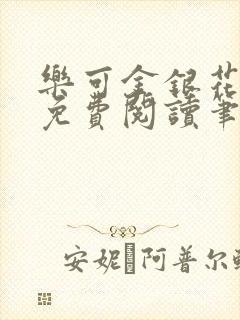 樂可金銀花
免費閱讀筆
安妮 阿普尔